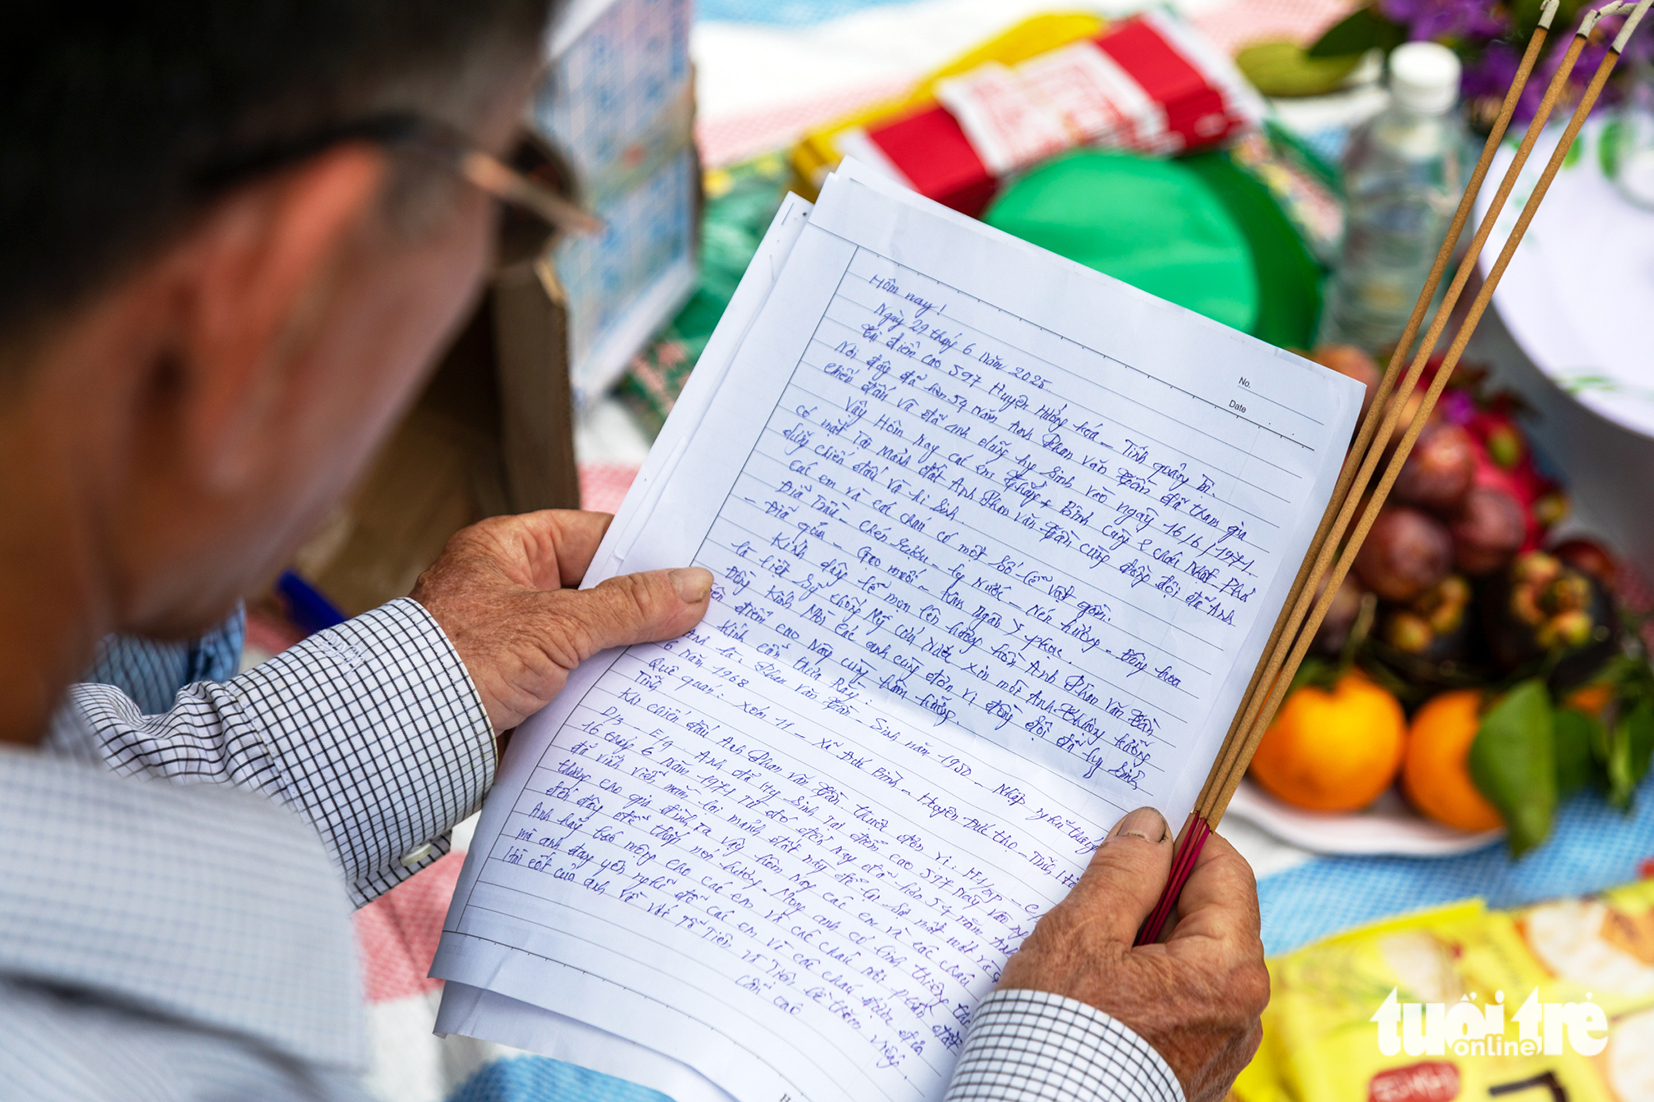 No.
Date
Hôm nay!
Ngày 29 tháng 6 năm 2025
Tại điểm cao 597 Huyện Hướng hóa - Tỉnh quảng Trị.
Nơi đây đã hơn 54 năm Anh Phan văn Đàn đã tham gia
chiến đấu và đã anh dũng hy sinh vào ngày 16/6/1971.
Vậy Hôm nay các em Thắng + Bình cùng 2 cháu Nhật Phú
có mặt Tại Mảnh đất Anh Phan văn Đàn cùng đồng đội đã Anh
dũng chiến đấu và hi sinh.
Các em và các cháu có một số lễ vật gồm:
Đĩa Trầu - chén Rượu - Ly nước - nén hương - Bông hoa
- Đĩa quả - Gạo muối - Kim ngân
Kính dâng lễ mọn lên hương hồn Anh Phan Văn Đàn
là liệt sỹ chống Mỹ cứu nước xin mời Anh
Đồng Kính Mời Các anh cùng đơn vị đồng đội đã hy sinh
điểm cao Này cùng hâm hưởng
Kính cẩn thưa Rằng:
Anh là: Phan Văn Đàn - Sinh năm 1950 - Nhập ngũ tháng
6 năm 1968
Quê quán: xóm 11 - xã Đức Bình - Huyện Đức thọ - Tỉnh
Tĩnh
Khi chiến đấu Anh Phan văn Đàn thuộc đơn vị:
D3 E19 Anh đã Hy sinh Tại điểm cao 597 ngày
16 tháng 6 năm 1971 Từ đó đến nay đã hơn 54 năm Anh
đã vĩnh viễn nằm lại mảnh đất này để lại sự mất mát
thương cho gia đình, vậy hôm nay các em và các cháu
đến đây để thắp nén hương - Mong anh có linh thiêng
Anh hãy báo mộng cho các em và các cháu nơi phần đất
mà anh đang yên nghỉ để các em và các cháu được đưa
Hài cốt của anh về với Tổ Tiên
Cẩn cáo
tuổi trẻ
online